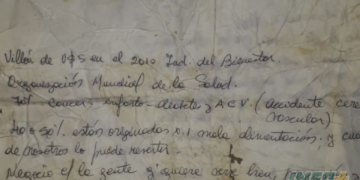 Villón de U$S en el 2010 Ind. del Bienestar
Organización Mundial de la Salud.
infarto - diabetes y A.C.V. (accidente cere
vascular)
40 o 50% están originadas x 1 mala alimentación y
de nosotros lo puede revertir
Negocio c/ la gente q' quiere